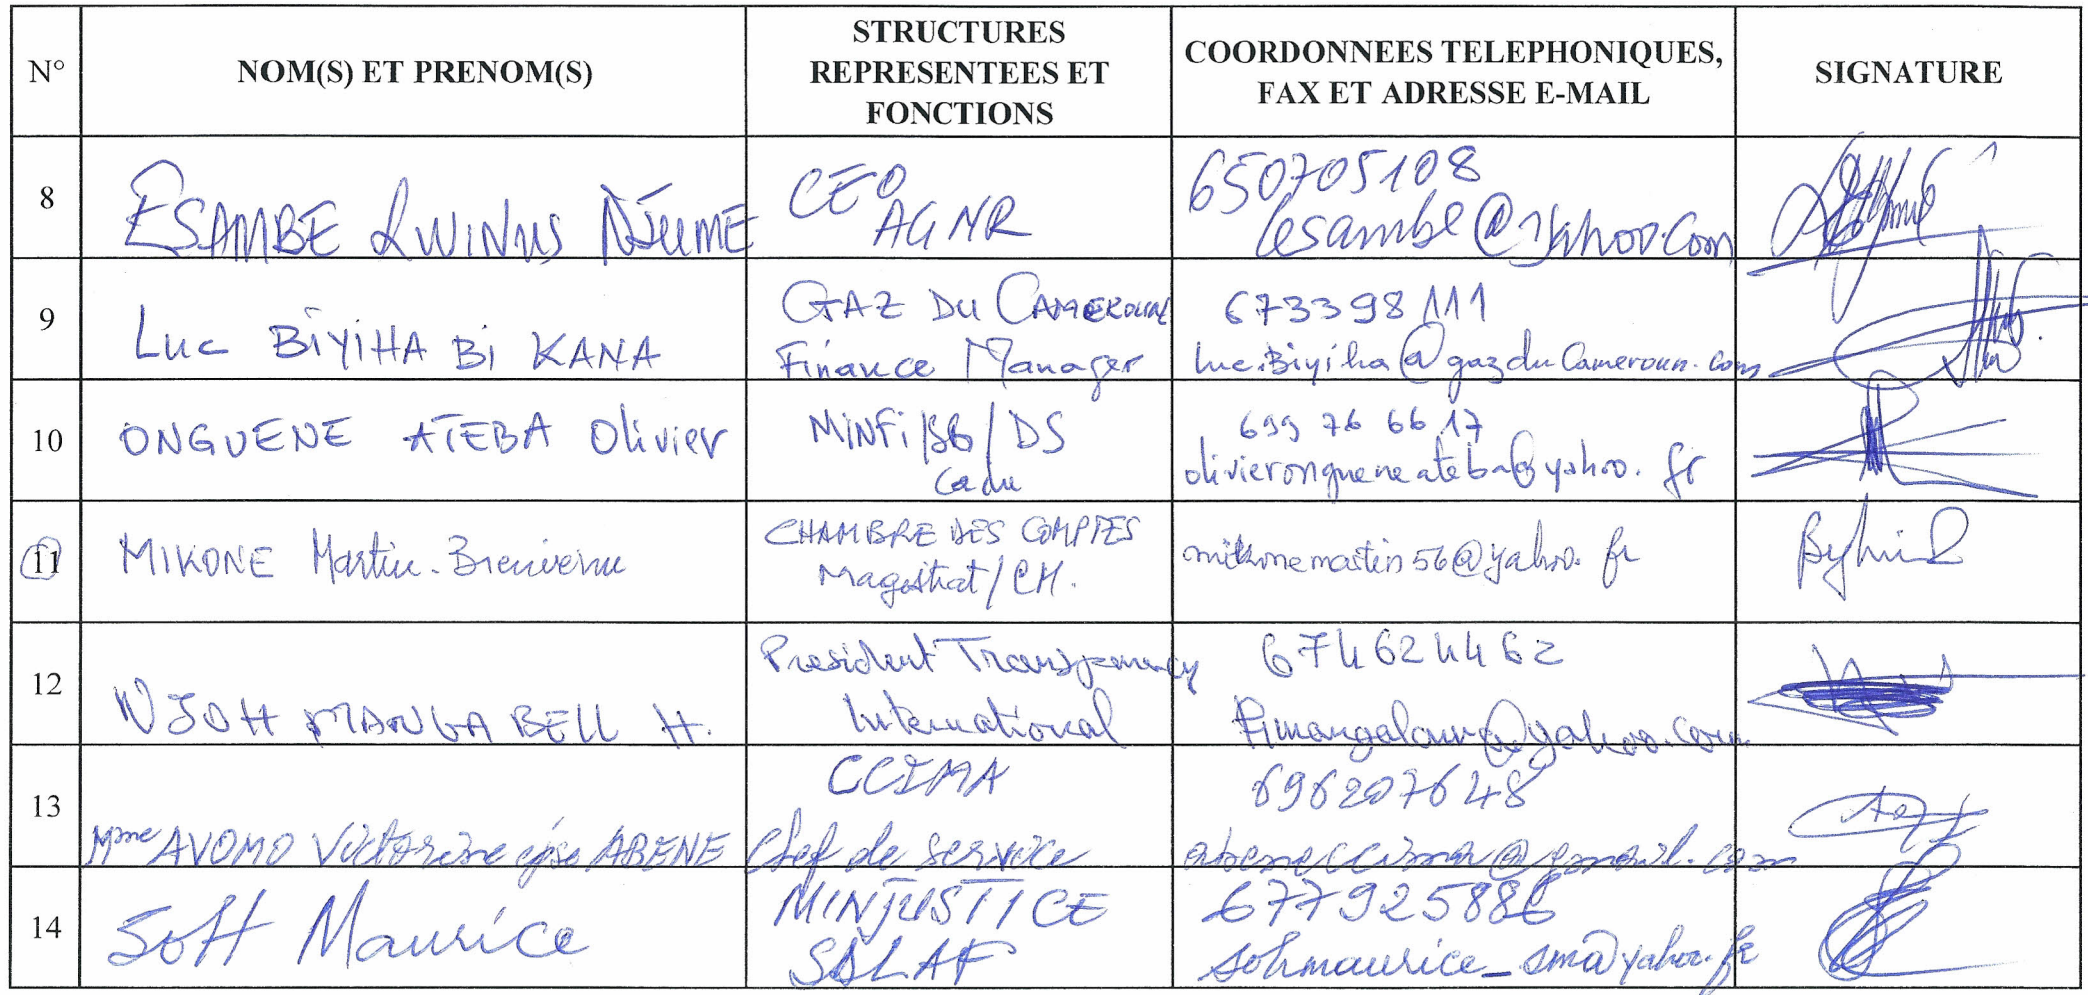 N°
NOM(S) ET PRENOM(S)
STRUCTURES
REPRESENTEES ET
FONCTIONS
COORDONNEES TELEPHONIQUES,
FAX ET ADRESSE E-MAIL
SIGNATURE
8
ESAMBE LWINUS NJUME
CEO
AGNR
650705108
lesambe@yahoo.com
9
Luc BIYIHA Bi KANA
GAZ DU CAMEROUN
Finance Manager
673398111
luc.Biyiha@gazduCameroun.com
10
ONGUENE ATEBA Olivier
MINFI/SG/DS
Cadre
699 76 66 17
olivierongueneateba@yahoo.fr
11
MIKONE Martin-Bienvenu
CHAMBRE DES COMPTES
Magistrat/CM.
mikonemartin56@yahoo.fr
12
NJOH MANGA BELL H.
President Transparency
International
674624462
@yahoo.com
13
Mme AVOMO Victorine épse ABENE
CCIMA
Chef de service
696207648
abeneccima@gmail.com
14
SOH Maurice
MINJUSTICE
677925886
sohmaurice_sma@yahoo.fr